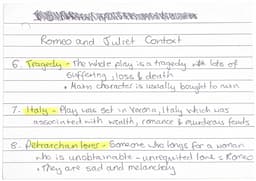 Romeo and Juliet Context
6. Tragedy - The whole play is a tragedy lots of
suffering, loss & death
• Main character is usually bought to ruin
7. Italy - Play was set in Verona, Italy which was
associated with wealth, romance & murderous feuds
8. Petrarchan lover - Someone who longs for a woman
who is unobtainable - unrequited love = Romeo
• They are sad and melancholy